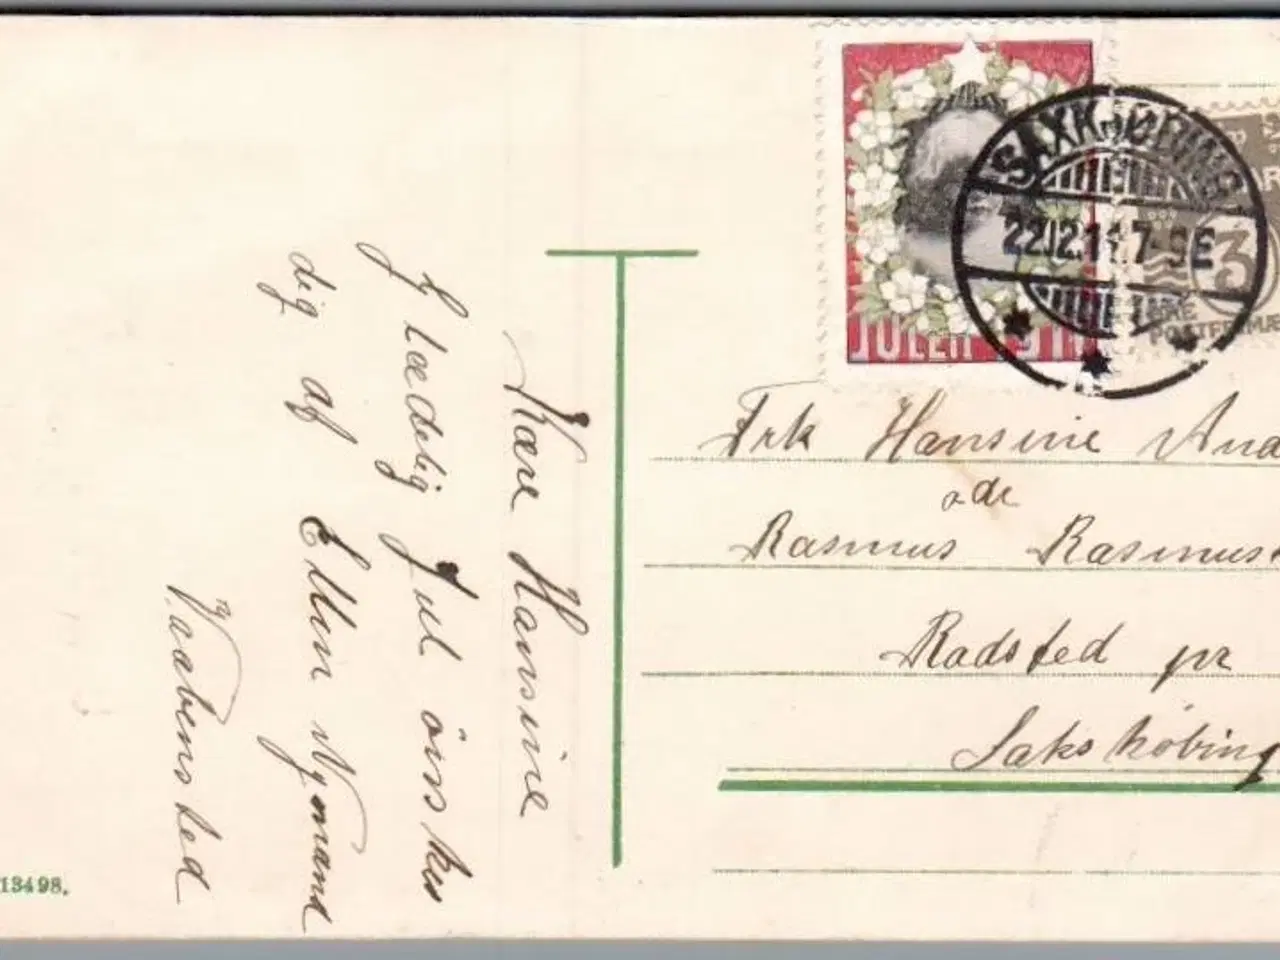 Kære Hansine
Glædelig Jul önskes
dig af Ellen Nymand
Vaabensted
13498.
JULEN 191
SAXKJØBING
22.12.11.7-9E
3
Frk Hansine And
adr
Rasmus Rasmus
Radsted pr
Sakskobing